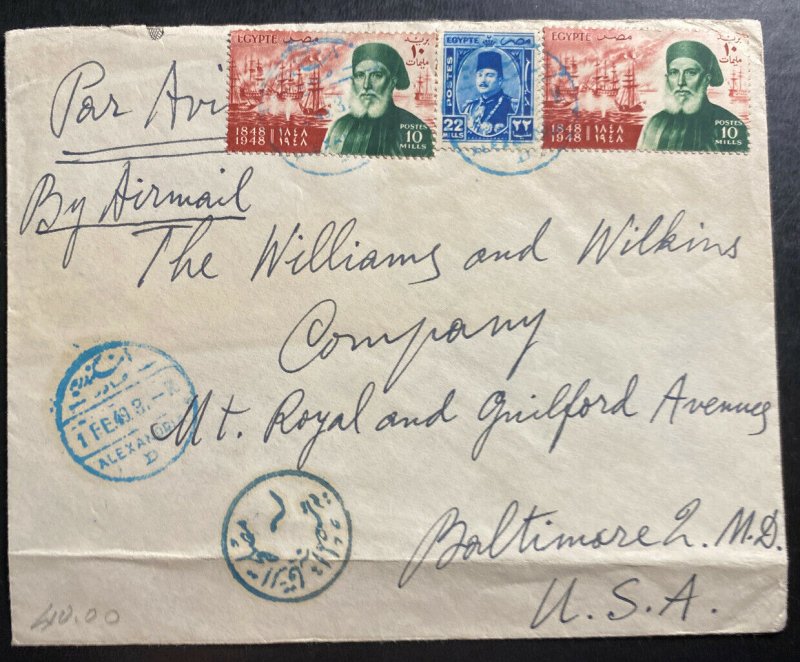 EGYPTE مصر بريد
١٠ مليمات
1848 ١٨٤٨
1948 ١٩٤٨
POSTES
10
MILLS
EGYPTE مصر
POSTES
22 ٢٢
MILLS
EGYPTE مصر بريد
١٠ مليمات
1848 ١٨٤٨
1948 ١٩٤٨
POSTES
10
MILLS
Par Avi
By Airmail
The Williams and Wilkins
Company
Mt. Royal and Guilford Avenues
Baltimore 2. M.D.
U. S. A.
1 FE.49
ALEXANDRI
D
40.00